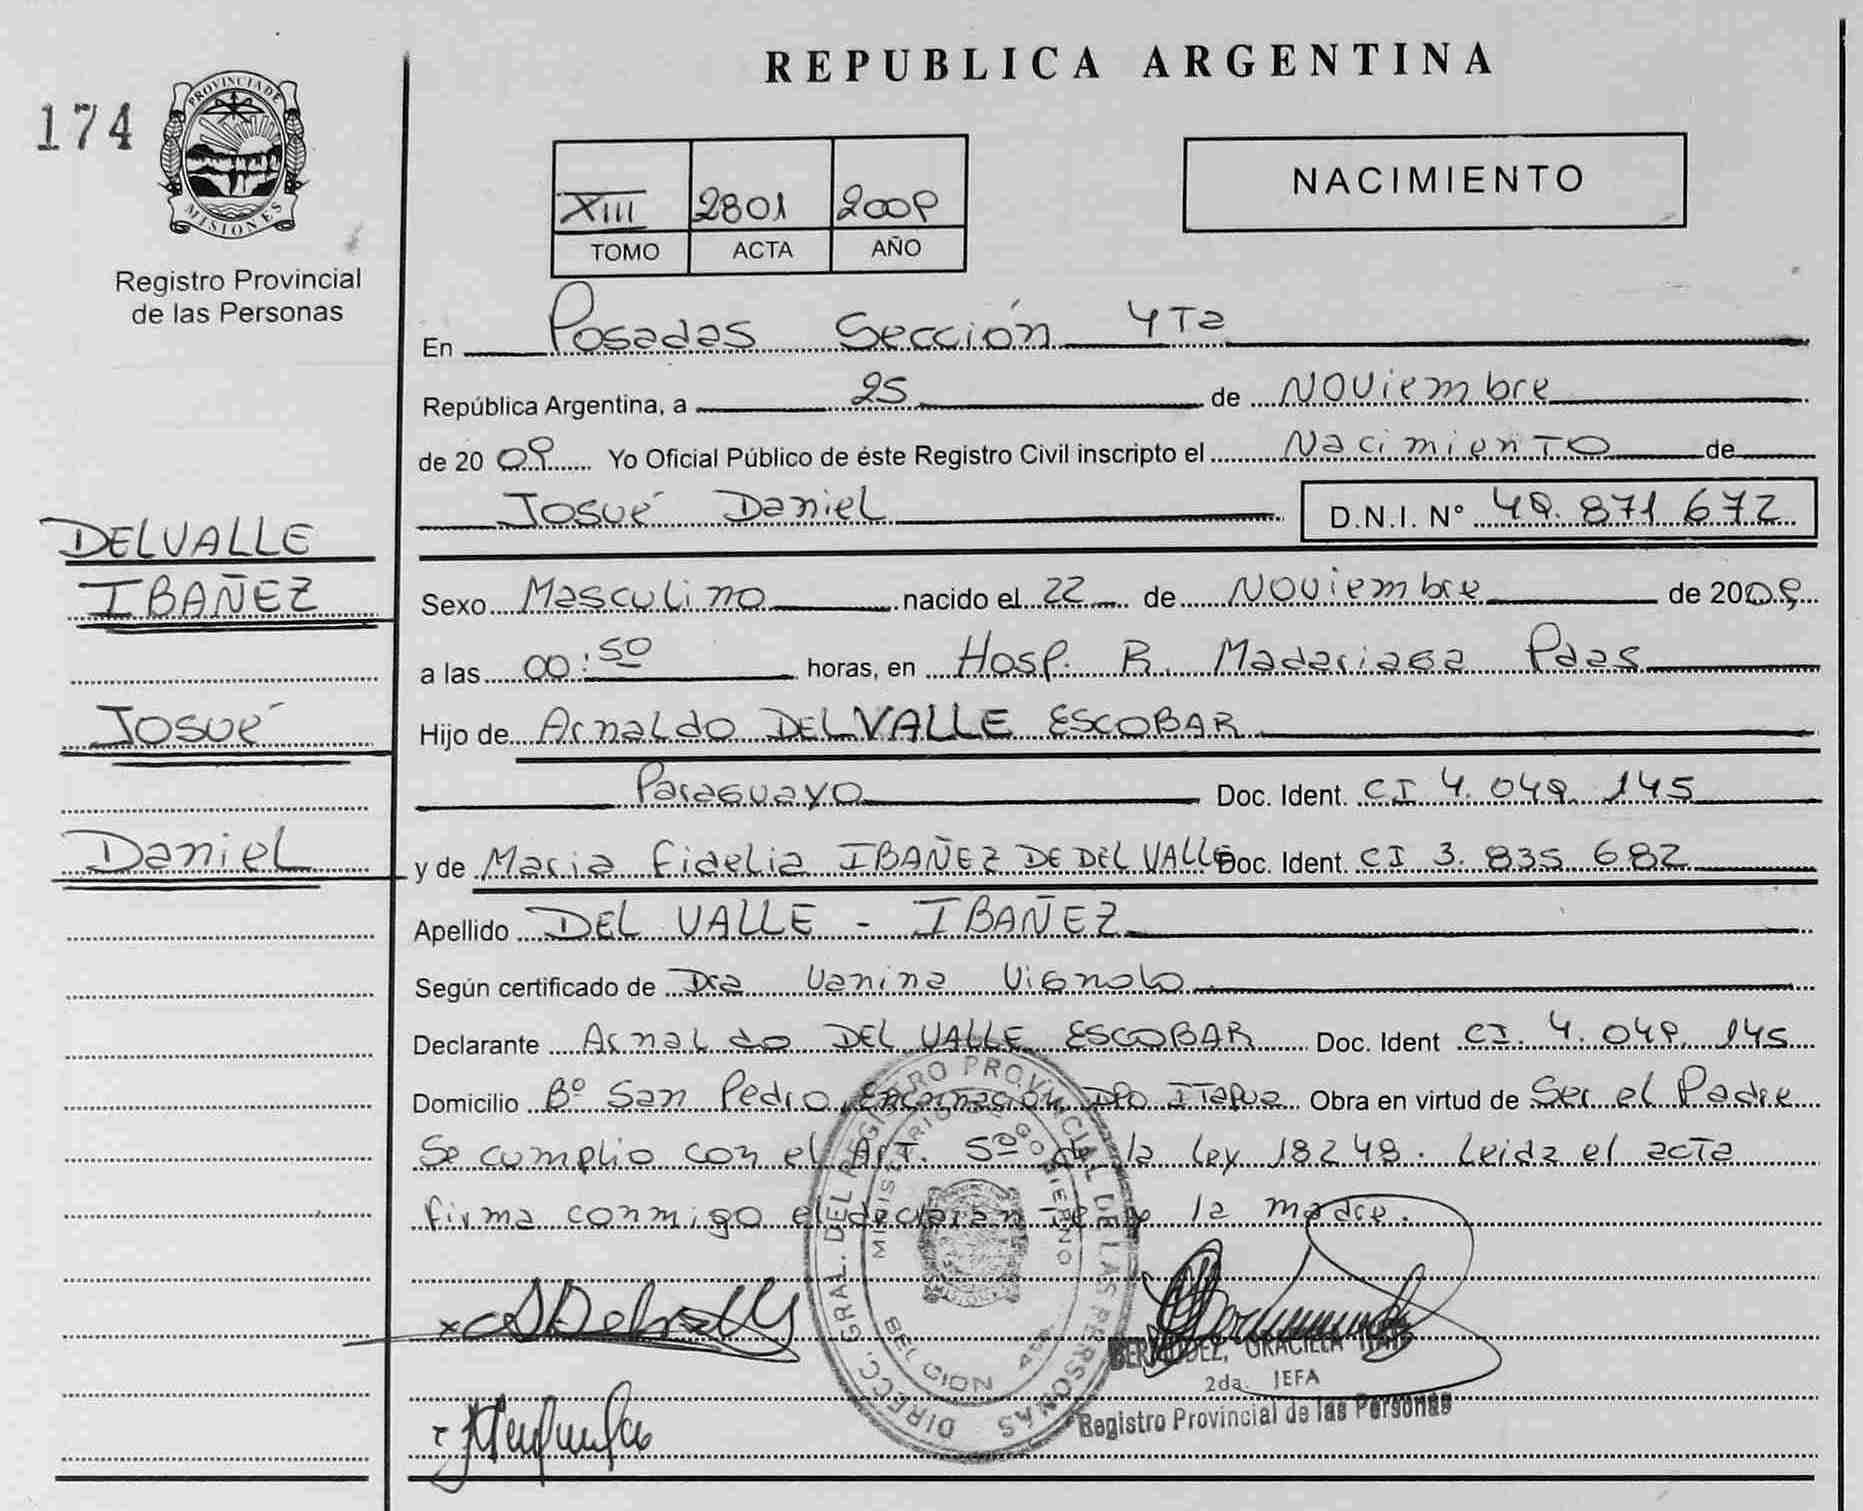 REPUBLICA ARGENTINA
174
PROVINCIA DE
MISIONES
Registro Provincial
de las Personas
XIII 2801 2009
TOMO ACTA AÑO
NACIMIENTO
En Posadas Sección 4Ta
República Argentina, a 25 de Noviembre
de 20 09 Yo Oficial Público de éste Registro Civil inscripto el Nacimiento de
Josué Daniel D.N.I. N° 49.871.672
DELVALLE
IBAÑEZ
Josué
Daniel
Sexo Masculino nacido el 22 de Noviembre de 2009
a las 00:50 horas, en Hosp. R. Madariaga Pdas
Hijo de Arnaldo DELVALLE ESCOBAR
Paraguayo Doc. Ident. CI 4.049.145
y de Maria Fidelia IBAÑEZ DE DEL VALLE Doc. Ident. CI 3.835.682
Apellido DEL VALLE - IBAÑEZ
Según certificado de Dra Vanina Vignolo
Declarante Arnaldo DEL VALLE ESCOBAR Doc. Ident CI. 4.049.145
Domicilio B° San Pedro Encarnación DPO ITapua Obra en virtud de Ser el Padre
Se cumplio con el ArT. 5º de la Ley 18248. Leida el acta
firma conmigo el declarante y la madre.
DIRECC. GRAL. DEL REGISTRO PROVINCIAL DE LAS PERSONAS
MINISTERIO DE GOBIERNO
GRACIELA
2da. JEFA
Registro Provincial de las Personas